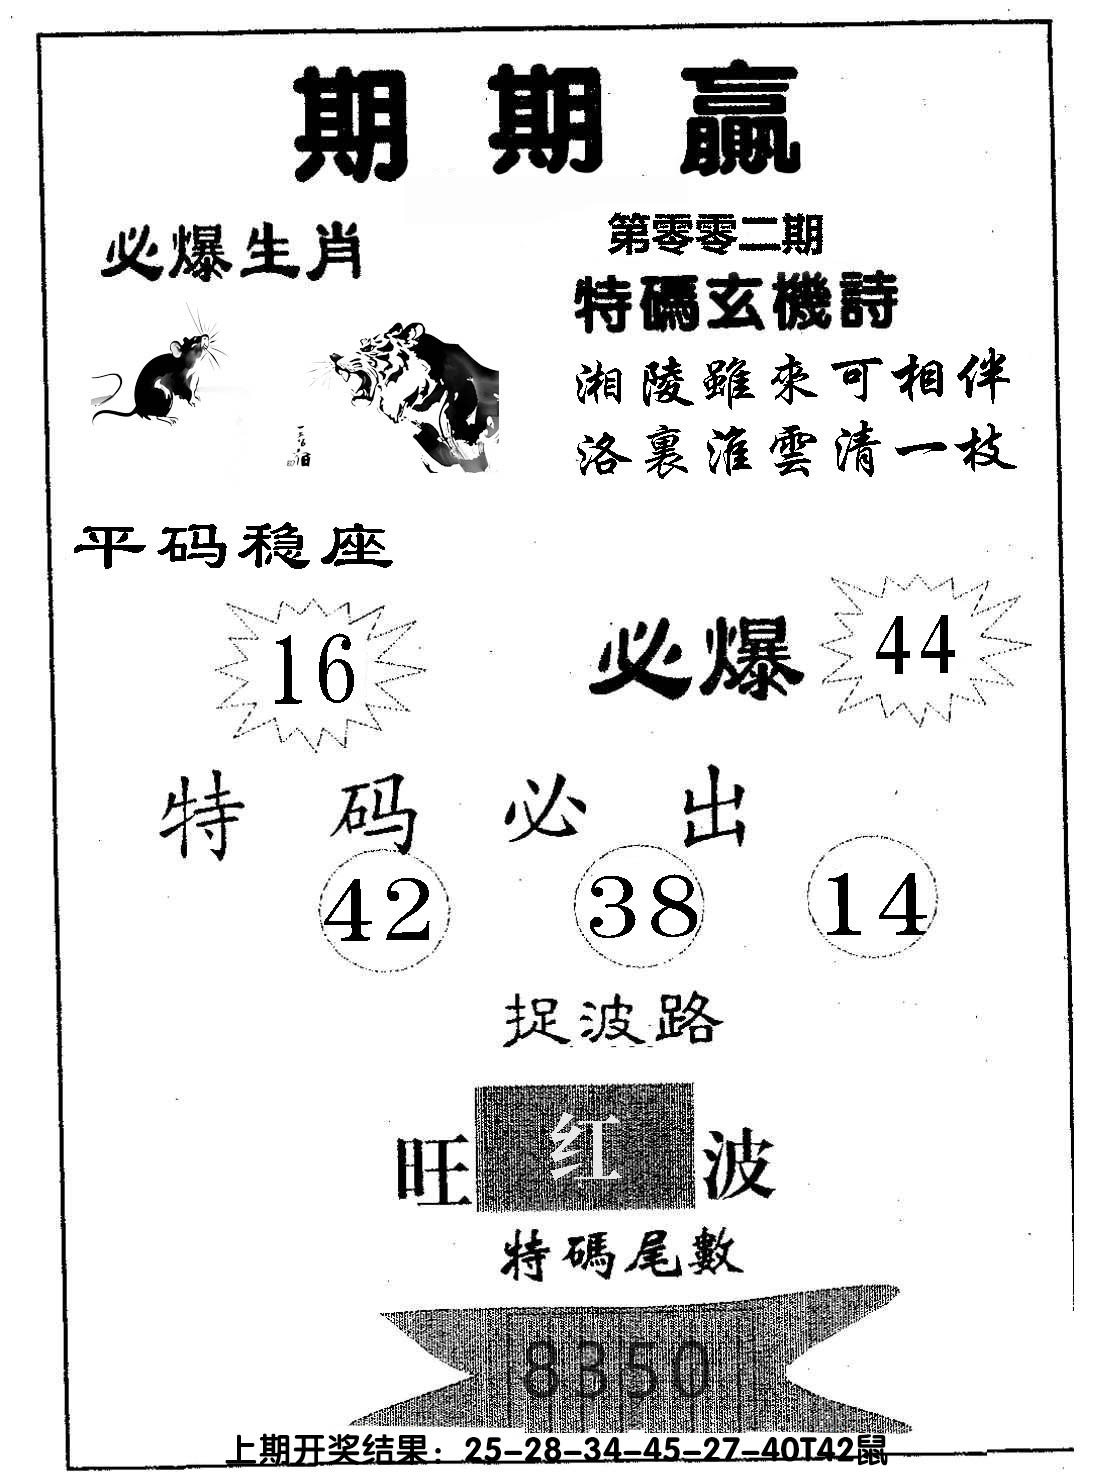 期期赢
必爆生肖
第零零二期
特碼玄機詩
湘陵雖來可相伴
洛裏淮雲清一枝
平码稳座
16
必爆
44
特码必出
42 38 14
捉波路
旺 红 波
特碼尾數
8350
上期开奖结果：25-28-34-45-27-40T42鼠